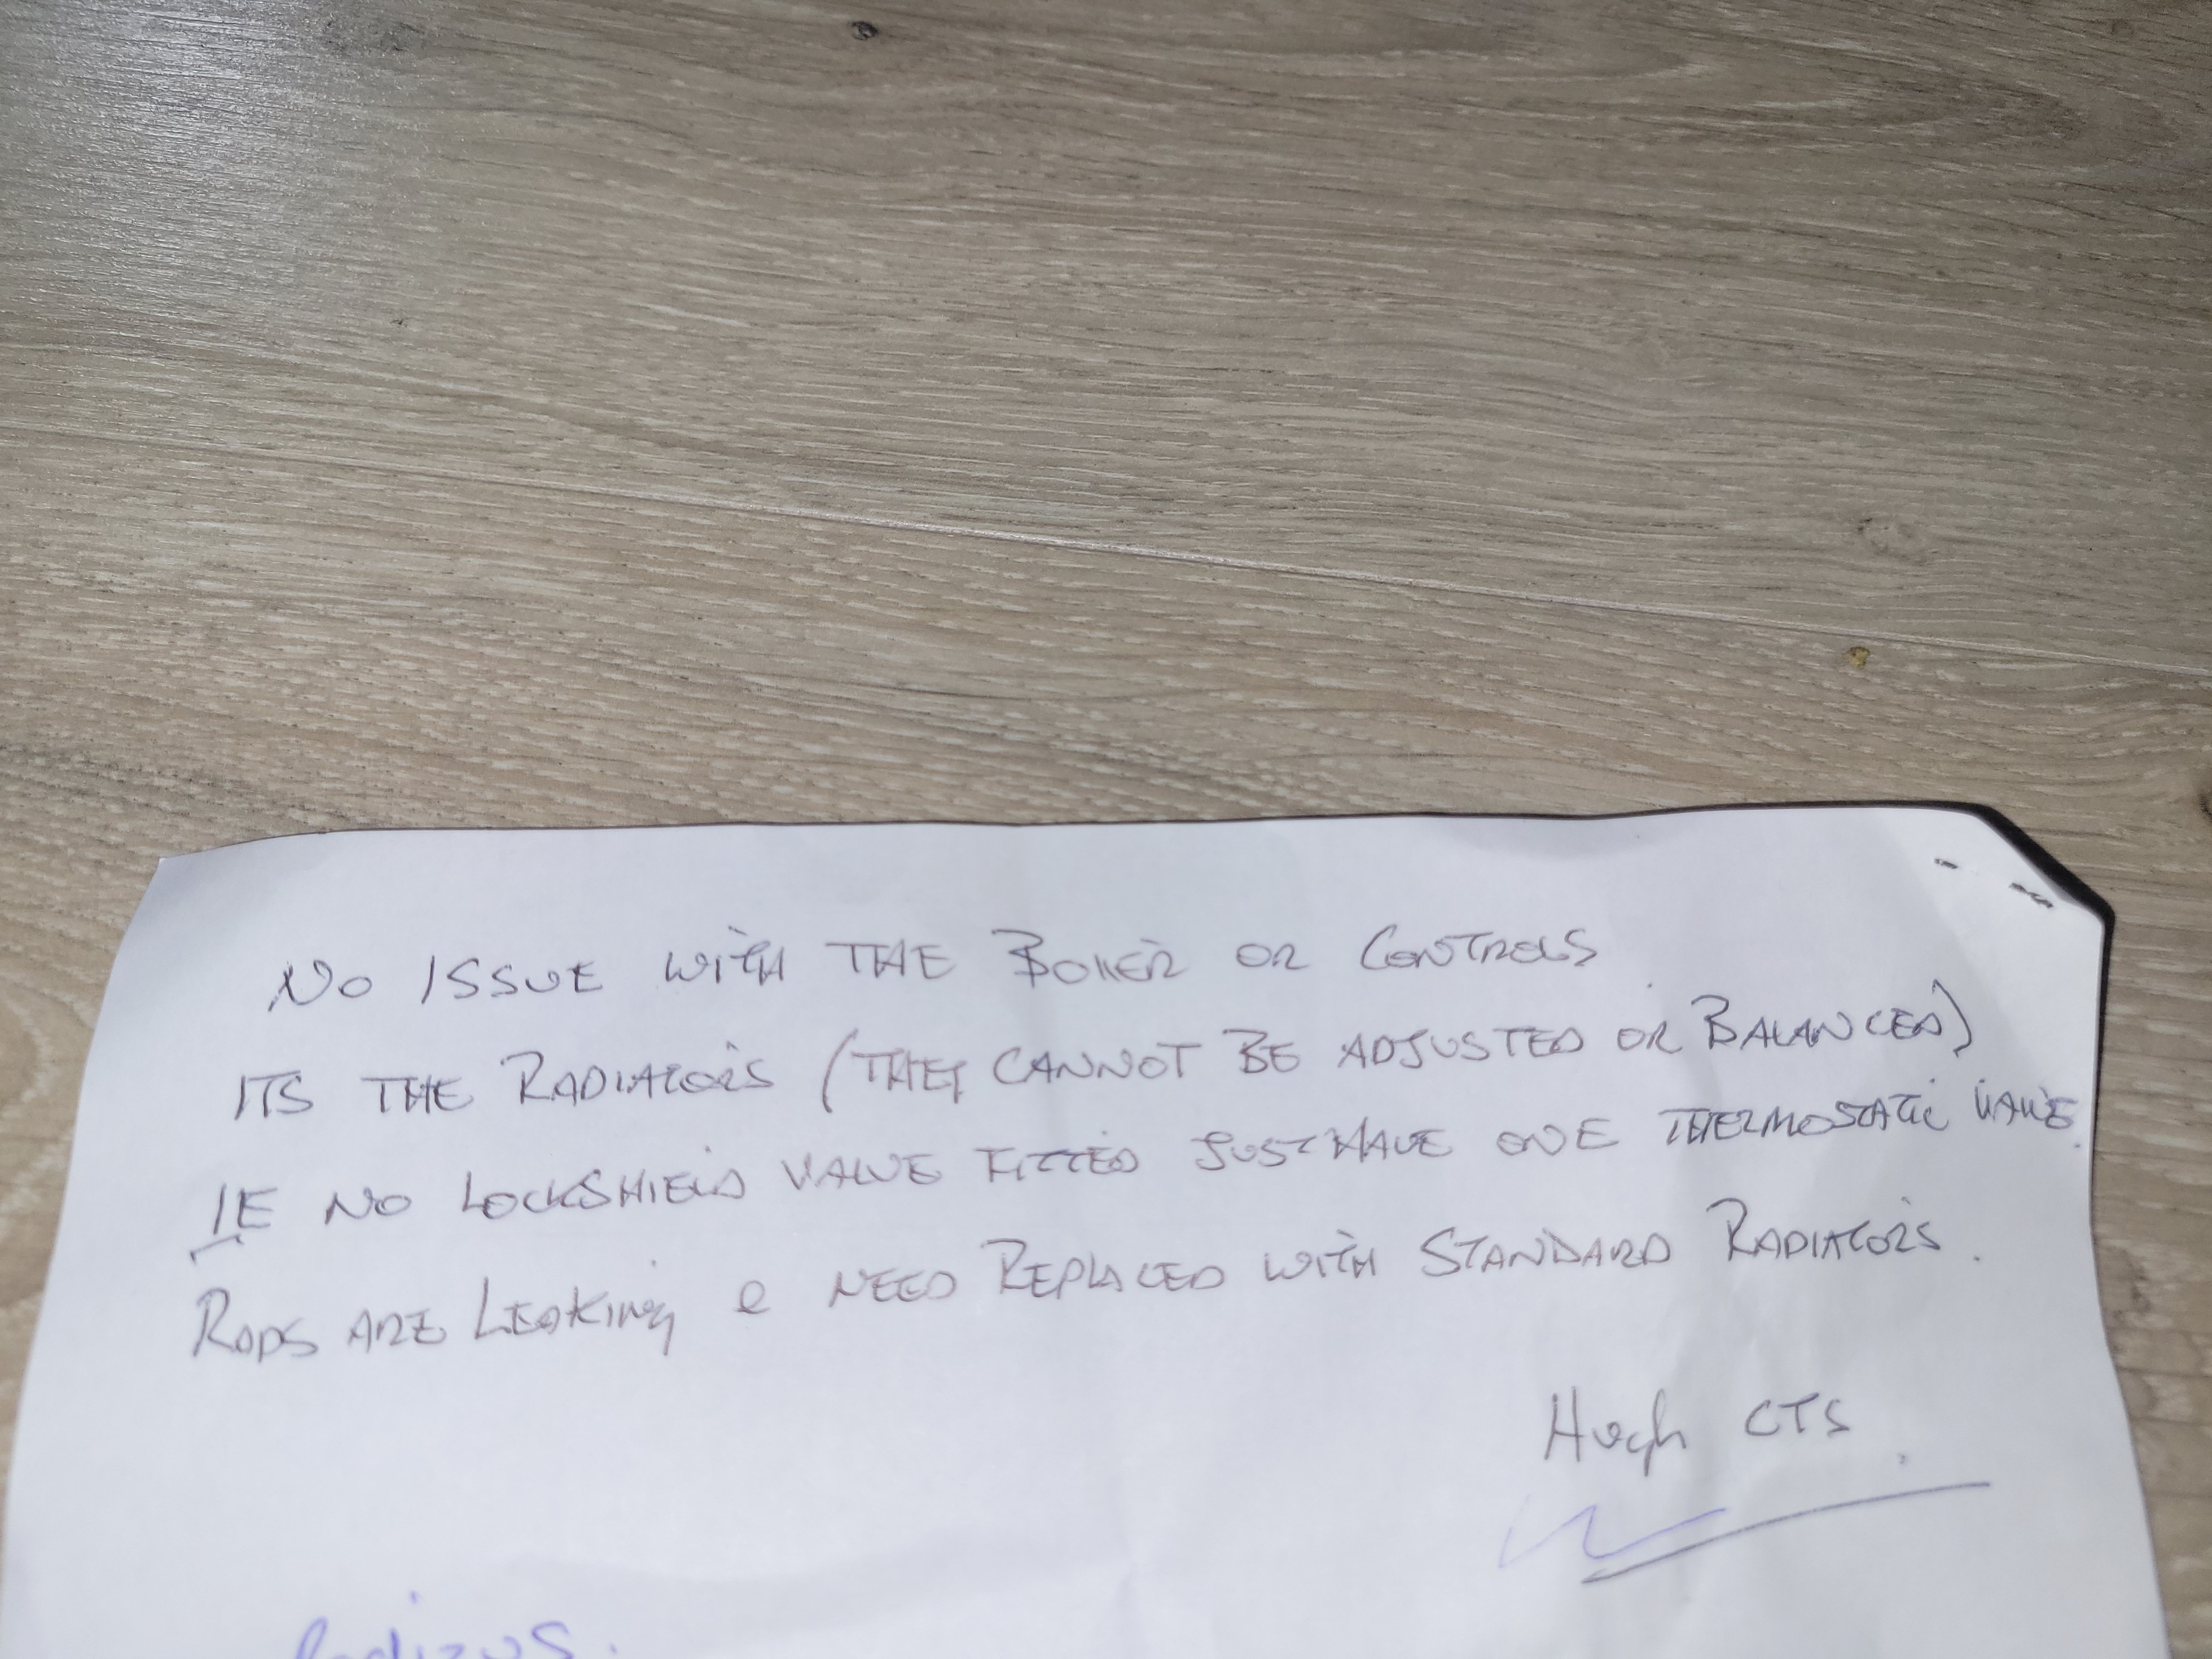 NO ISSUE WITH THE BOILER OR CONTROLS
ITS THE RADIATORS (THEY CANNOT BE ADJUSTED OR BALANCED)
IE NO LOCKSHIELD VALVE FITTED JUST HAVE ONE THERMOSTATIC VALVE.
RADS ARE LEAKING & NEED REPLACED WITH STANDARD RADIATORS.
Hugh CTS.